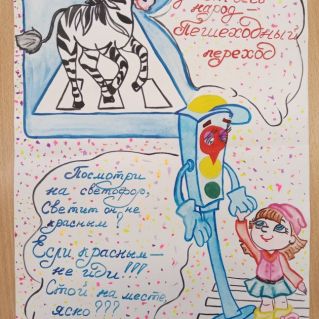 народ
Пешеходный
переход
Посмотри
на светофор,
Светит он не
красным!
Если красным—
не иди!!!
Стой на месте,
ясно???